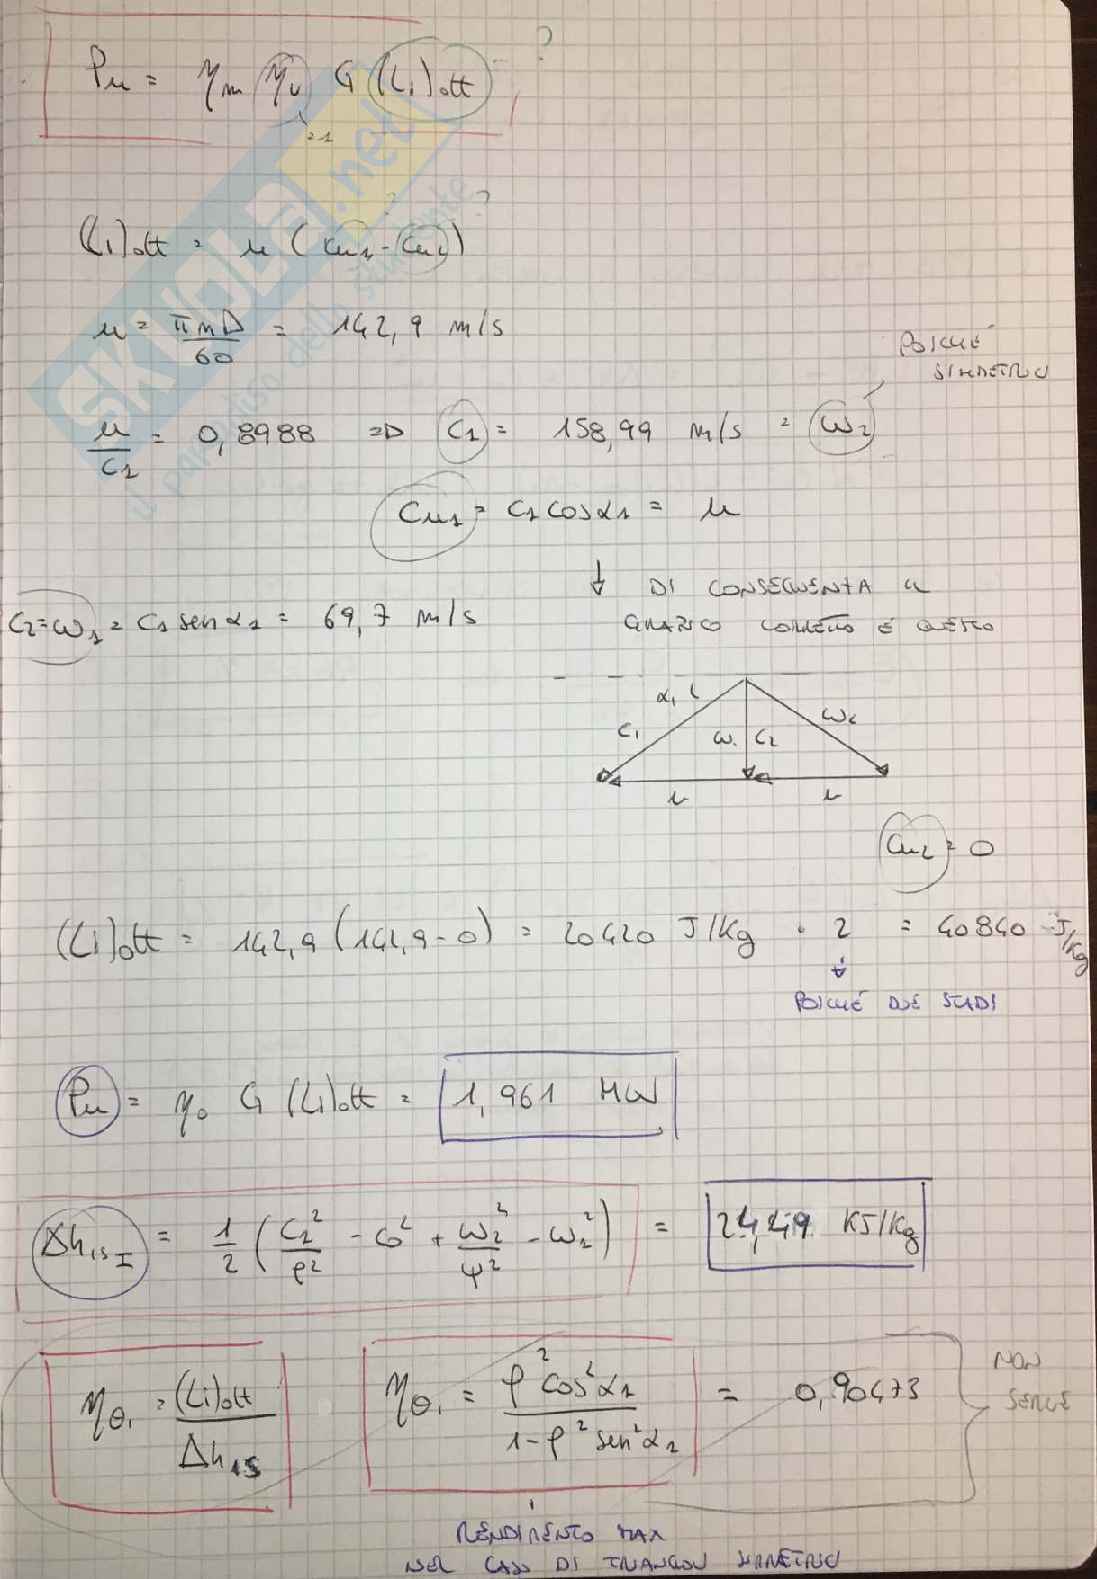 Pu = ηm ηv G (Li)ott ?
≃1
? ?
(Li)ott = u (cu1 - cu2)
u = πnD/60 = 142,9 m/s
POICHÉ
SIMMETRICO
u/c1 = 0,8988 => c1 = 158,99 m/s = w2
cu1 = c1 cosα1 = u
↓ DI CONSEGUENZA IL
GRAFICO CORRETTO È QUESTO
c2 = w1 = c1 sen α1 = 69,7 m/s
α1
c1 w1 c2 w2
u u
cu2 = 0
(Li)ott = 142,9 (142,9 - 0) = 20420 J/kg · 2 = 40840 J/kg
↓
POICHÉ DUE STADI
Pu = ηo G (Li)ott = 1,961 MW
Δhis I = 1/2 (c1²/φ² - c0² + w2²/ψ² - w1²) = 24,49 KJ/Kg
ηθi = (Li)ott/Δhis
ηθi = φ² cos²α1/1-φ² sen²α1 = 0,90473
NON
SERVE
RENDIMENTO MAX
NEL CASO DI TRIANGOLI SIMMETRICI
SKUOLA.net
il paradiso dello studente